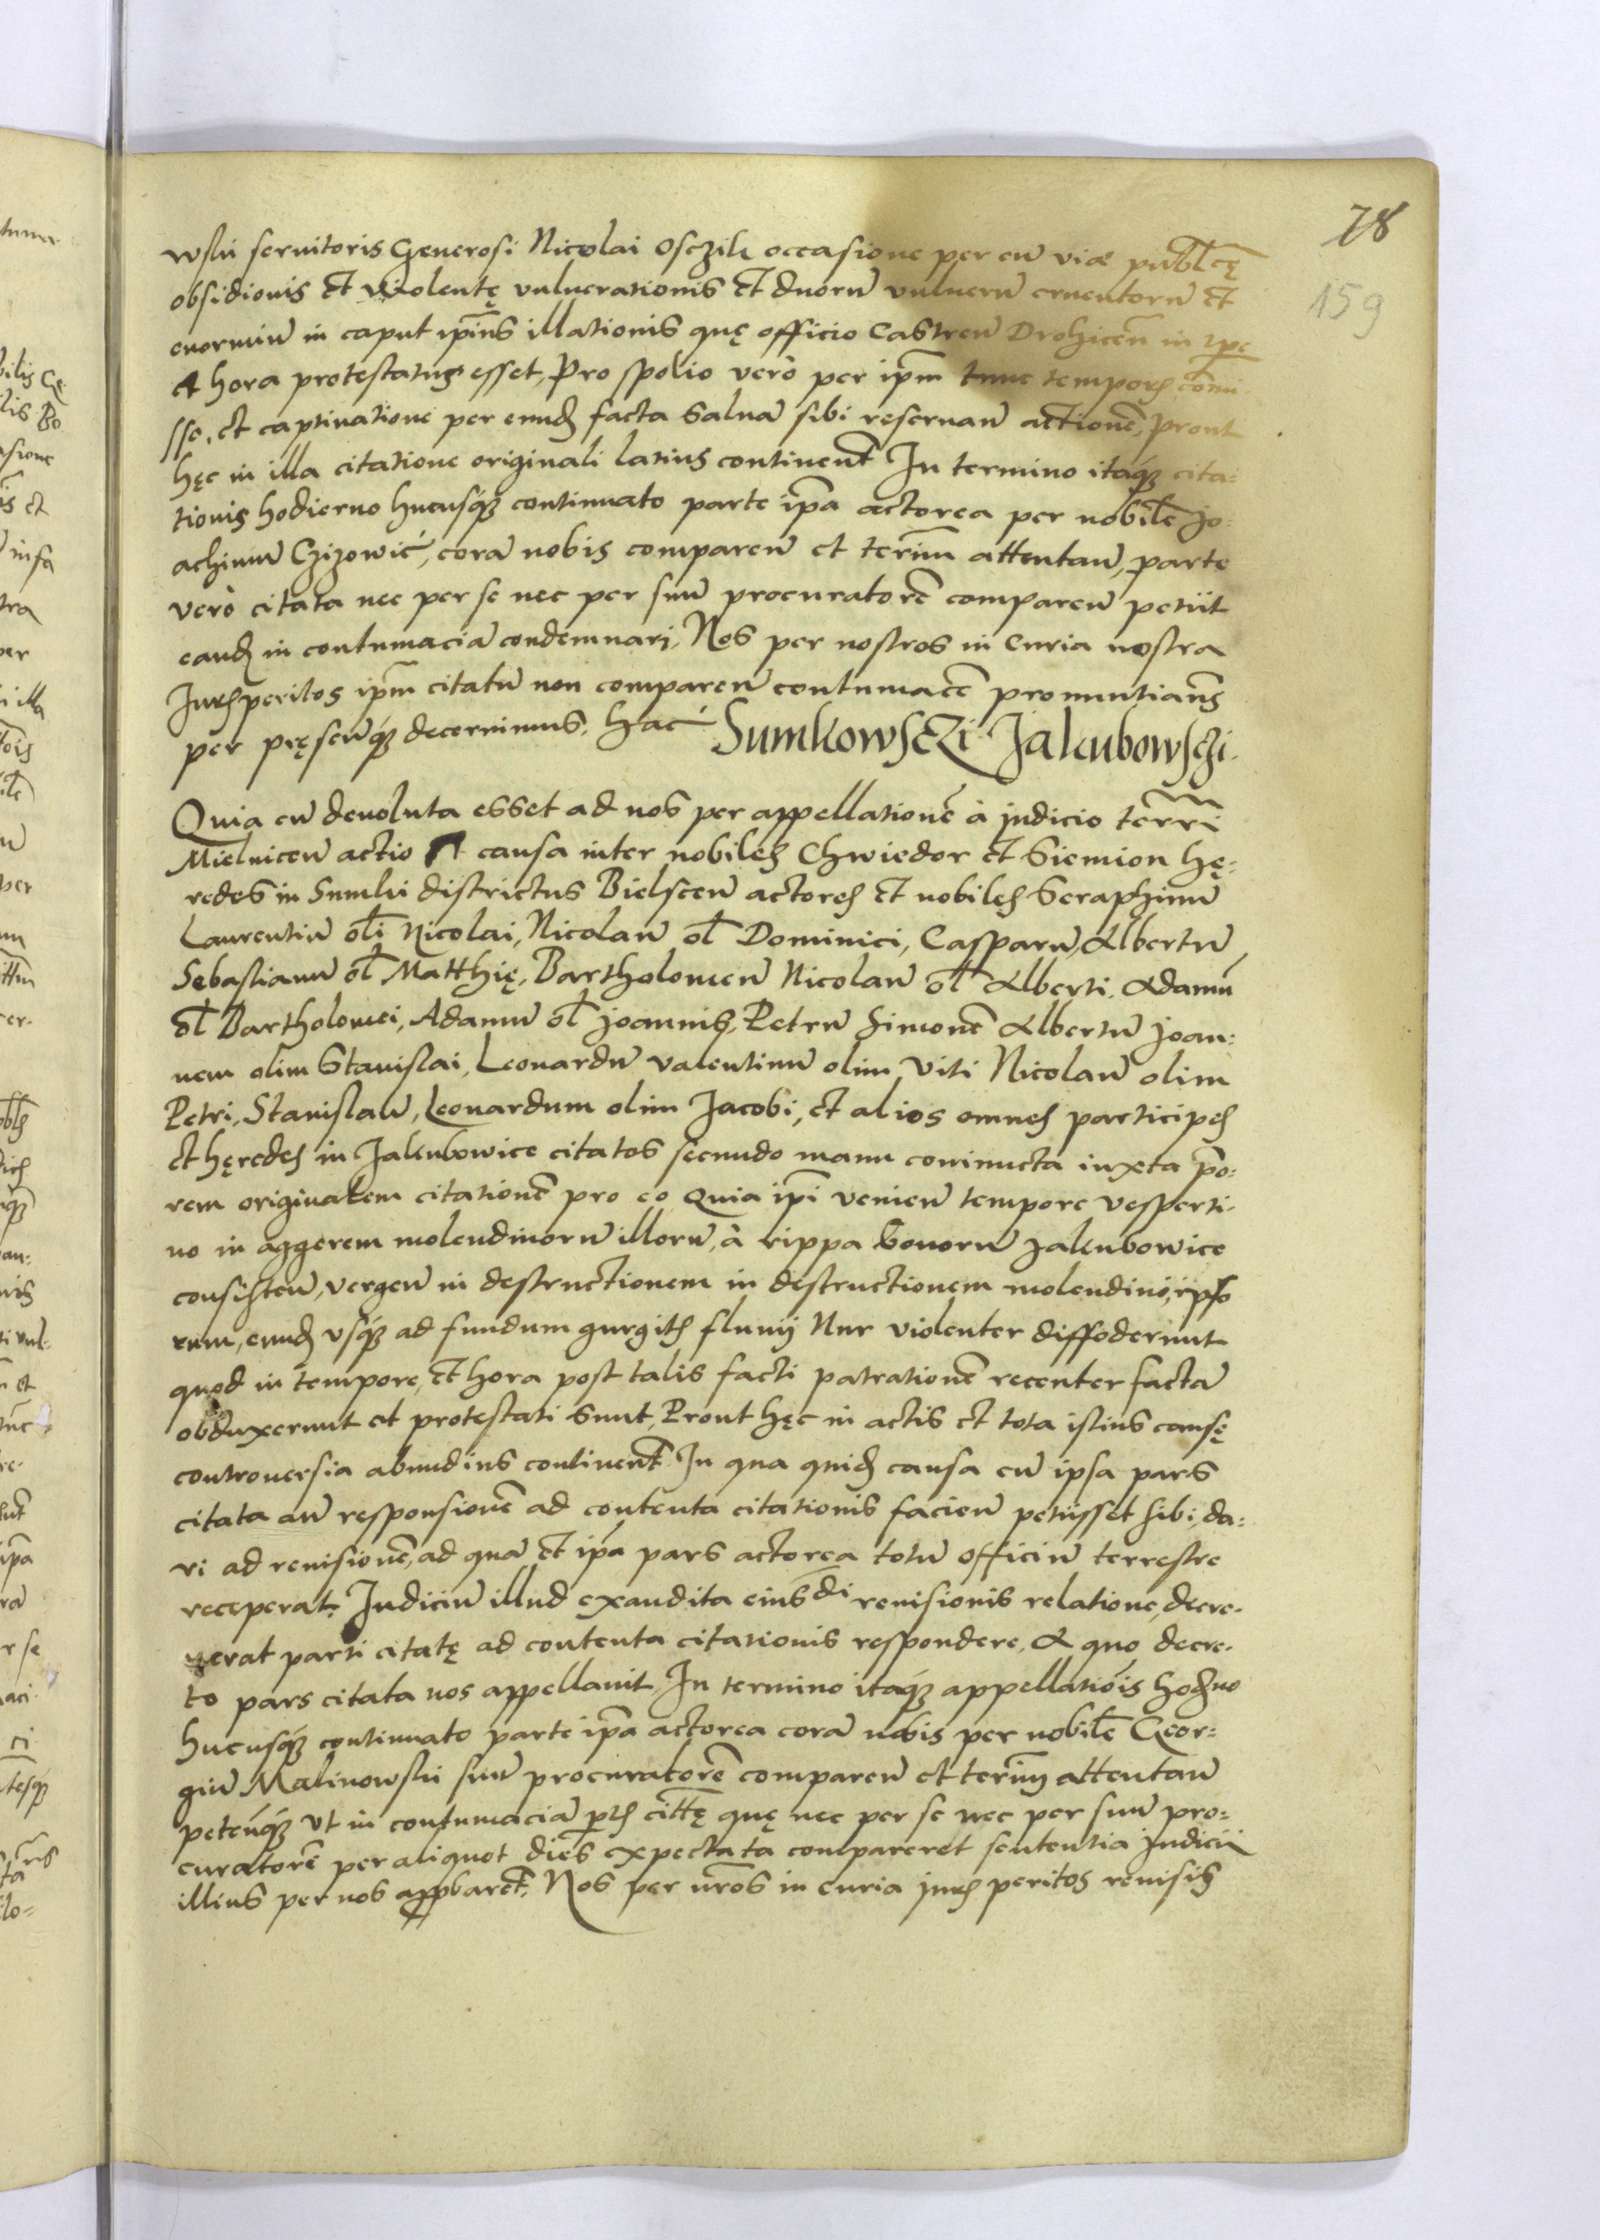 78
159
wski seruitoris Generosi Nicolai Osczik occasione per eū viæ publcę
obsidionis et violentę vulnerationis et duorū vulnerū cruentorū et
enormiū in caput ipīus illationis quę officio Castren̄ Drohicen̄ in tpe
et hora protestatus esset, Pro spolio verò per ipm̄ tunc temporis com̄i
sso, et captiuatione per eund facta Saluā sibi reseruan̄ actionē, prout
hęc in illa citatione originali latius continent̄ In termino itaq3 cita:
tionis hodierno hucusq3 continuato parte ip̄a actorea per nobilē Jo:
achimum Czizowic̄, corā nobis comparen̄ et term̄ attentan̄, parte
verò citata nec per se nec per suū procuratorē comparen̄ petiit
eand in contumaciā condemnari, Nos per nostros in Curia nostra
Jurisperitos ipm̄ citatū non comparen̄ contumacē pronuntians
per pręsen̄q3 decernimus, hac̄ Sumkowsczi Jakubowsczi.
Quia cū deuoluta esset ad nos per appellationē à judicio terrī
Mielnicen̄ actio et causa inter nobiles Chwiedor et Siemion hę:
redes in Sumki districtus Bielscen̄ actores et nobiles Seraphinū
Laurentiū ol̄i Nicolai, Nicolaū ol̄ Dominici, Casparū, Albertū
Sebastianū ol̄ Matthię, Bartholomeū Nicolaū ol̄ Alberti, Adamū
ol̄ Bartholomei, Adamū ol̄ joannis, Petrū Simonē Albertū Joan:
nem olim Stanislai, Leonardū valentinū olim Viti Nicolaū olim
Petri, Stanislaū, Leonardum olim Jacobi, et alios omnes participes
et hęredes in Jakubowice citatos secundo manu coniuncta iuxta p̄o:
rem originalem citationē pro eo Quia ip̄i venien̄ tempore vesperti-
no in aggerem molendinorū illorū, à rippa bonorū Jakubowice
consisten̄, vergen̄ in destructionem in destructionem molendini, ipso
rum, eund vsq3 ad fundum gurgitis fluuij Nur violenter diffoderunt
quod in tempore, et hora post talis facti patrationē recenter factā
obduxerunt et protestati sunt, Prout hęc in actis et tota istius causę
controuersia abundius continent̄ In qua quid causa cū ipsa pars
citata an̄ responsionē ad contenta citationis facien̄ petiisset sibi, da:
ri ad reuisionē, ad quā et ip̄a pars actorea totū officiū terrestre
receperat, Judiciū illud exaudita eiusdi reuisionis relatione, decre-
uerat parti citatę ad contenta citationis respondere, A quo decre-
to pars citata nos appellauit, In termino itaq3 appellatiōis hodno
hucusq3 continuato parte ip̄a actorea corā nobis per nobilē Geor:
giū Malinowski suū procuratorē comparen̄ et term̄ attentan̄
peten̄q3 vt in contumaciā ptis citt̄ę quę nec per se nec per suū pro:
curatorē per aliquot dies expectata compareret sententia Judicii
illius per nos appbaret̄, Nos per nr̄os in curia juris peritos reuisis